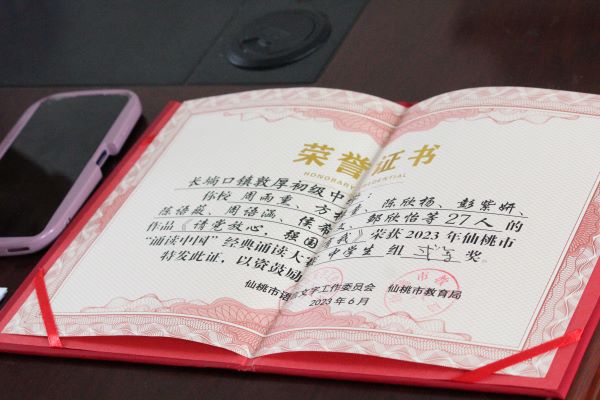 荣誉证书
HONORARY CREDENTIAL
长埫口镇敦厚初级中
你校 周雨重、方 陈欣扬、彭紫妍、
陈语薇、周语涵、侯 邹欣怡等27人的
作品《请党放心,强国 我》荣获2023年仙桃市
“诵读中国”经典诵读大 中学生 组 奖
特发此证,以资鼓励
仙桃市语 文字工作委员会 仙桃市教育局
2023年6月